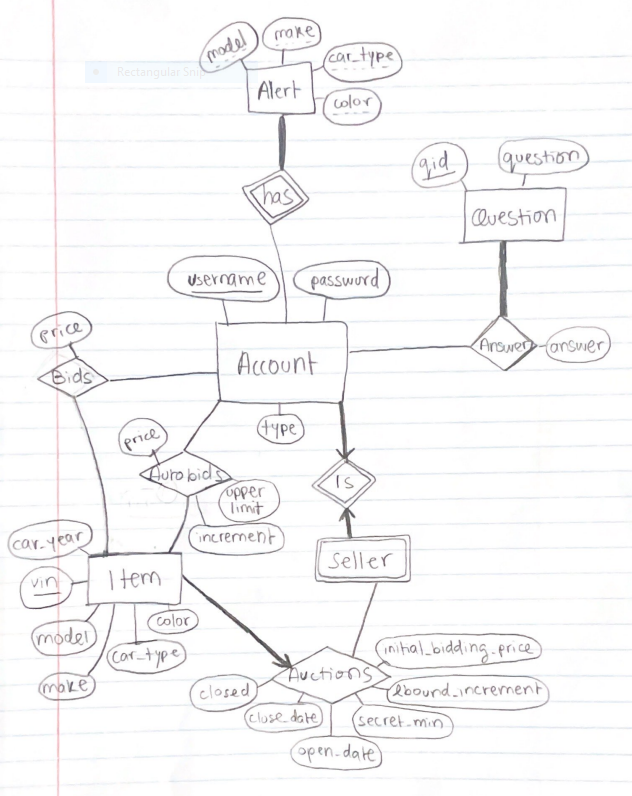 model
make
Rectangular Snip
car_type
Alert
color
has
qid
question
Question
username
password
price
Bids
Account
Answer
answer
type
price
Autobids
upper
limit
increment
Is
car_year
vin
Item
Seller
model
color
car_type
make
initial_bidding_price
Auctions
closed
lbound_increment
close_date
secret_min
open_date